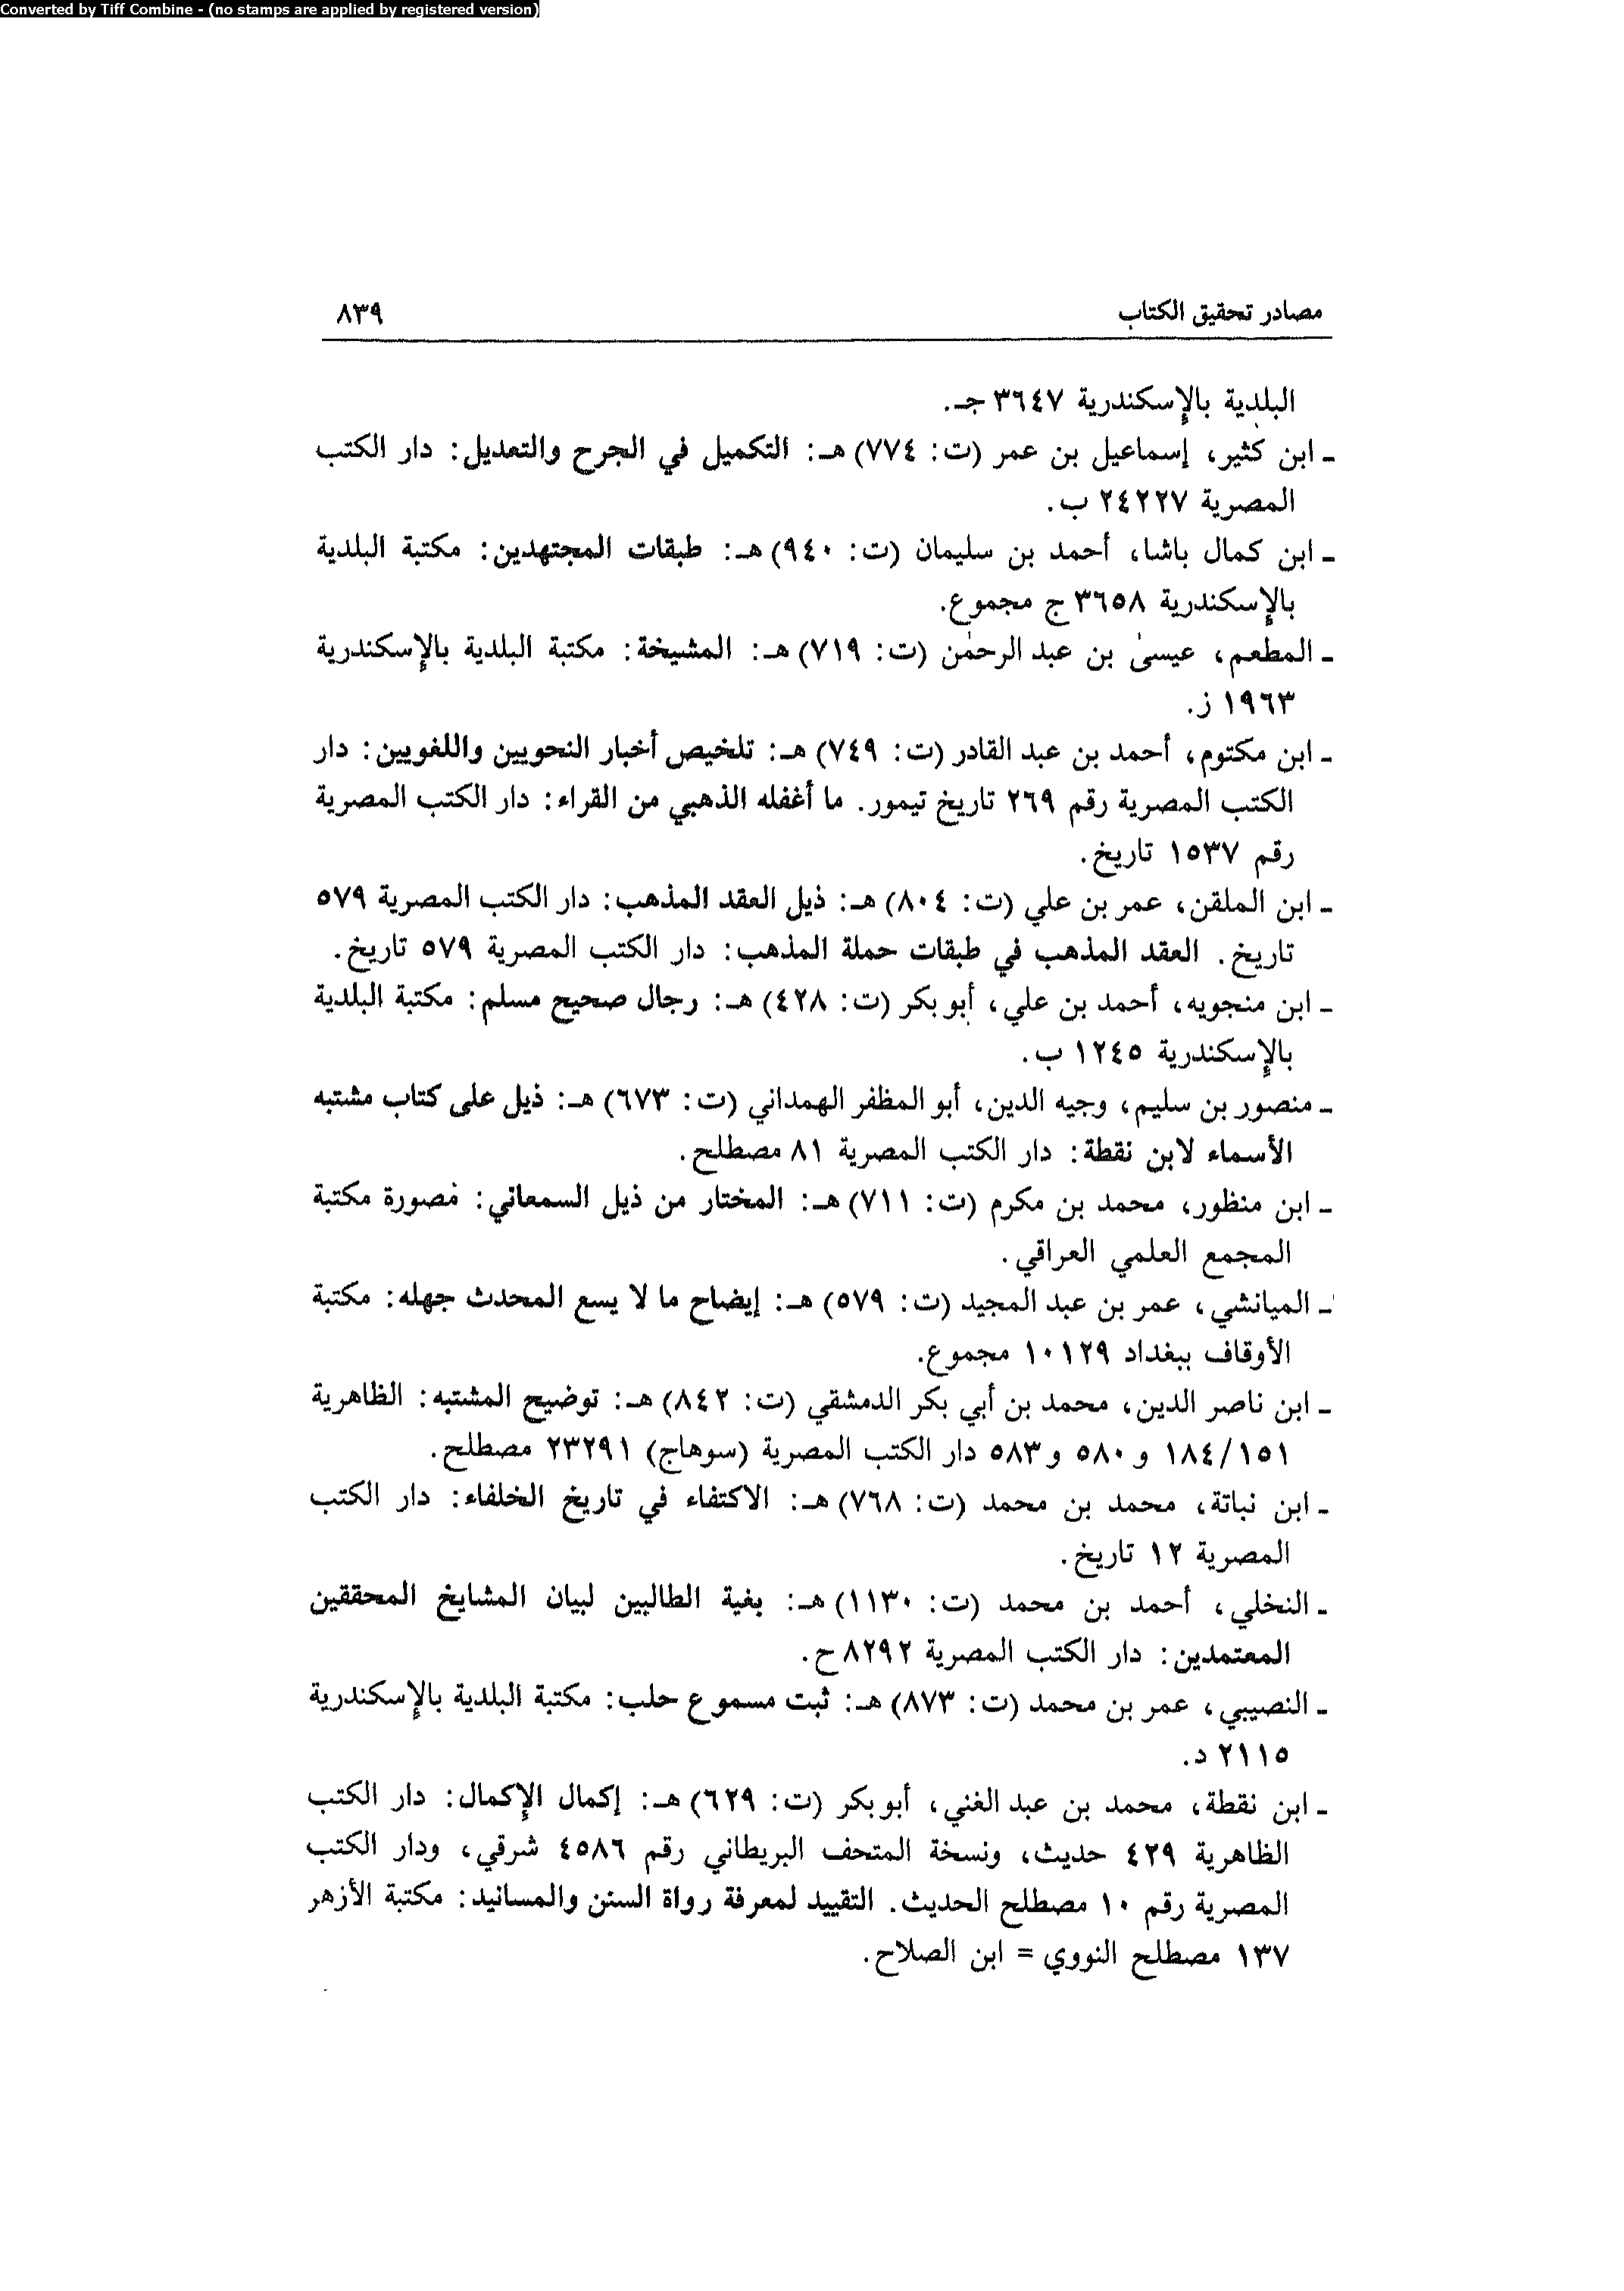 Converted by Tiff Combine - (no stamps are applied by registered version)
مصادر تحقيق الكتاب ٨٣٩
البلدية بالإسكندرية ٣٦٤٧ جـ.
ـ ابن كثير، إسماعيل بن عمر (ت: ٧٧٤) هـ: التكميل في الجرح والتعديل: دار الكتب
المصرية ٢٤٢٢٧ ب.
ـ ابن كمال باشا، أحمد بن سليمان (ت: ٩٤٠) هـ: طبقات المجتهدين: مكتبة البلدية
بالإسكندرية ٣٦٥٨ ج مجموع.
ـ المطعم، عيسىٰ بن عبد الرحمٰن (ت: ٧١٩) هـ: المشيخة: مكتبة البلدية بالإسكندرية
١٩٦٣ ز.
ـ ابن مكتوم، أحمد بن عبد القادر (ت: ٧٤٩) هـ: تلخيص أخبار النحويين واللغويين: دار
الكتب المصرية رقم ٢٦٩ تاريخ تيمور. ما أغفله الذهبي من القراء: دار الكتب المصرية
رقم ١٥٣٧ تاريخ.
ـ ابن الملقن، عمر بن علي (ت: ٨٠٤) هـ: ذيل العقد المذهب: دار الكتب المصرية ٥٧٩
تاريخ. العقد المذهب في طبقات حملة المذهب: دار الكتب المصرية ٥٧٩ تاريخ.
ـ ابن منجويه، أحمد بن علي، أبو بكر (ت: ٤٢٨) هـ: رجال صحيح مسلم: مكتبة البلدية
بالإسكندرية ١٢٤٥ ب.
ـ منصور بن سليم، وجيه الدين، أبو المظفر الهمداني (ت: ٦٧٣) هـ: ذيل على كتاب مشتبه
الأسماء لابن نقطة: دار الكتب المصرية ٨١ مصطلح.
ـ ابن منظور، محمد بن مكرم (ت: ٧١١) هـ: المختار من ذيل السمعاني: مصورة مكتبة
المجمع العلمي العراقي.
ـ الميانشي، عمر بن عبد المجيد (ت: ٥٧٩) هـ: إيضاح ما لا يسع المحدث جهله: مكتبة
الأوقاف ببغداد ١٠١٢٩ مجموع.
ـ ابن ناصر الدين، محمد بن أبي بكر الدمشقي (ت: ٨٤٢) هـ: توضيح المشتبه: الظاهرية
١٨٤/١٥١ و ٥٨٠ و ٥٨٣ دار الكتب المصرية (سوهاج) ٢٣٢٩١ مصطلح.
ـ ابن نباتة، محمد بن محمد (ت: ٧٦٨) هـ: الاكتفاء في تاريخ الخلفاء: دار الكتب
المصرية ١٢ تاريخ.
ـ النخلي، أحمد بن محمد (ت: ١١٣٠) هـ: بغية الطالبين لبيان المشايخ المحققين
المعتمدين: دار الكتب المصرية ٨٢٩٢ ح.
ـ النصيبي، عمر بن محمد (ت: ٨٧٣) هـ: ثبت مسموع حلب: مكتبة البلدية بالإسكندرية
٢١١٥ د.
ـ ابن نقطة، محمد بن عبد الغني، أبو بكر (ت: ٦٢٩) هـ: إكمال الإكمال: دار الكتب
الظاهرية ٤٢٩ حديث، ونسخة المتحف البريطاني رقم ٤٥٨٦ شرقي، ودار الكتب
المصرية رقم ١٠ مصطلح الحديث. التقييد لمعرفة رواة السنن والمسانيد: مكتبة الأزهر
١٣٧ مصطلح النووي = ابن الصلاح.